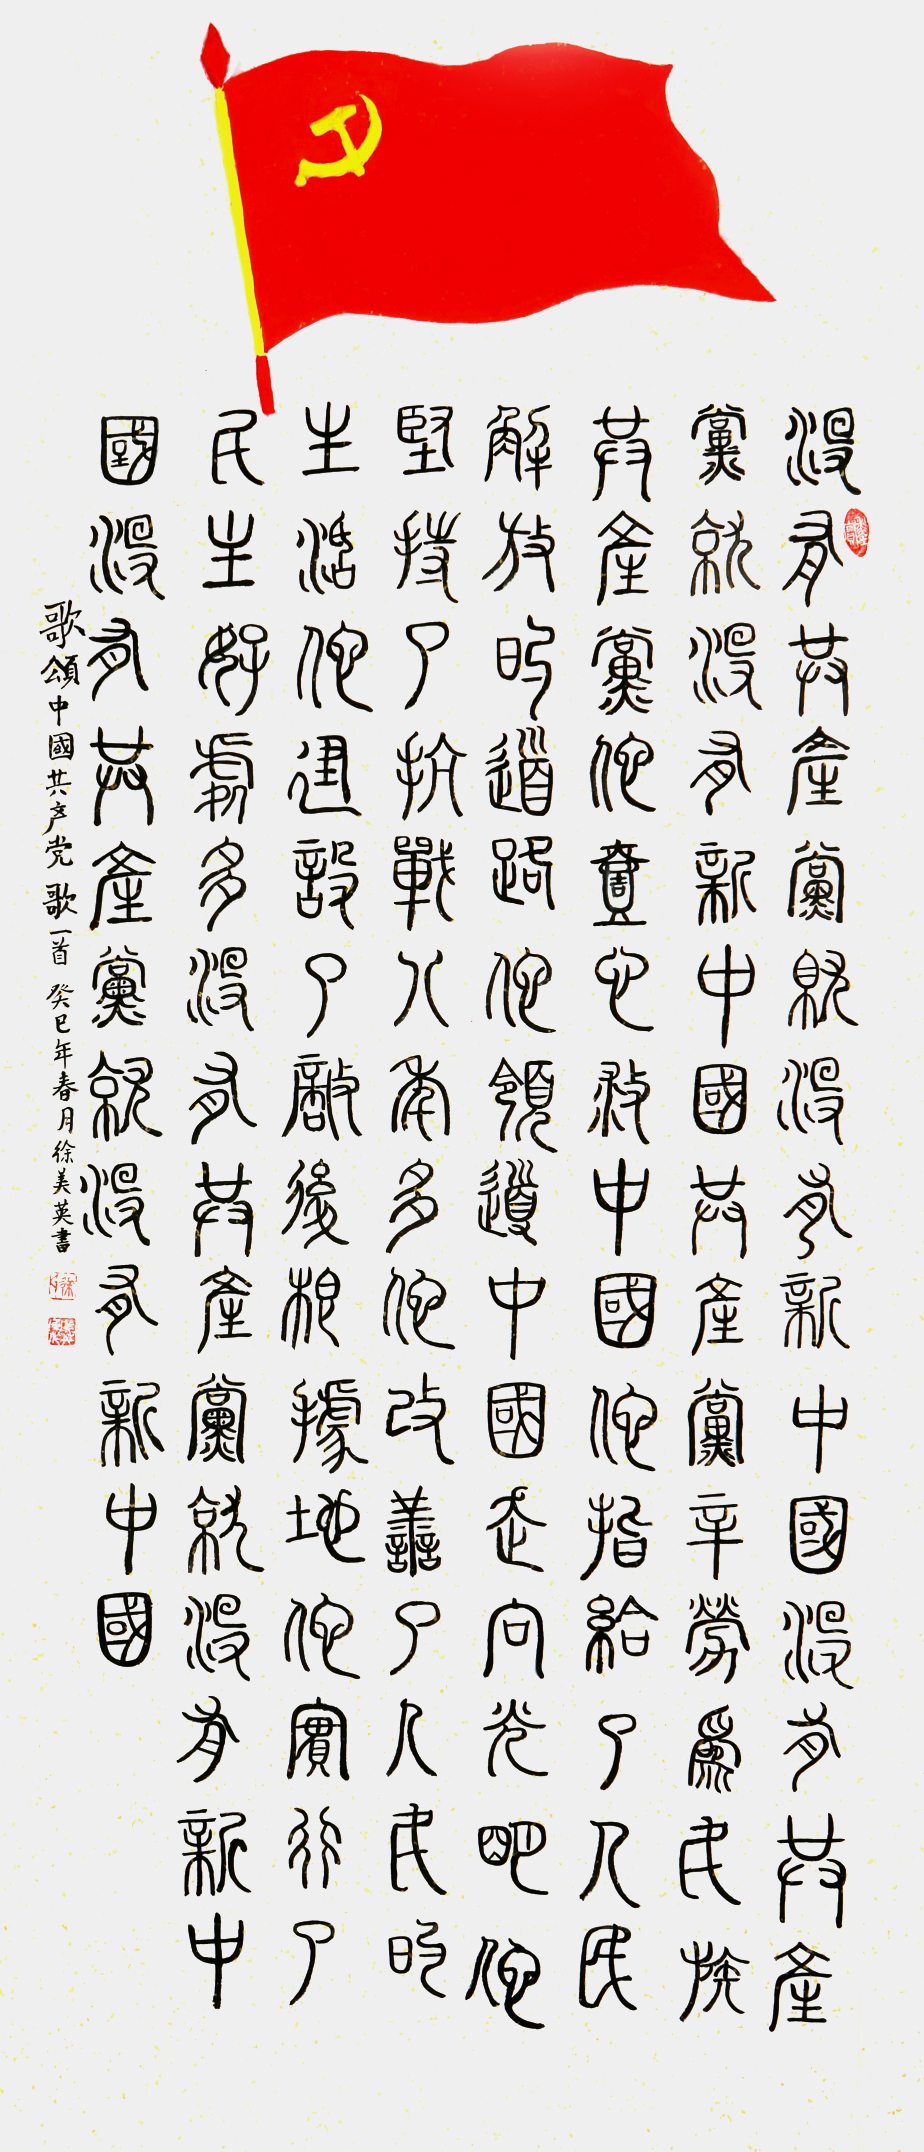 沒有共產黨就沒有新中國沒有共產
黨就沒有新中國共產黨辛勞爲民族
共產黨他壹心救中國他指給了人民
解放的道路他領導中國走向光明他
堅持了抗戰八年多他改善了人民的
生活他建設了敵後根據地他實行了
民主好處多沒有共產黨就沒有新中
國沒有共產黨就沒有新中國
歌頌中國共产党歌一首 癸巳年春月徐美英書